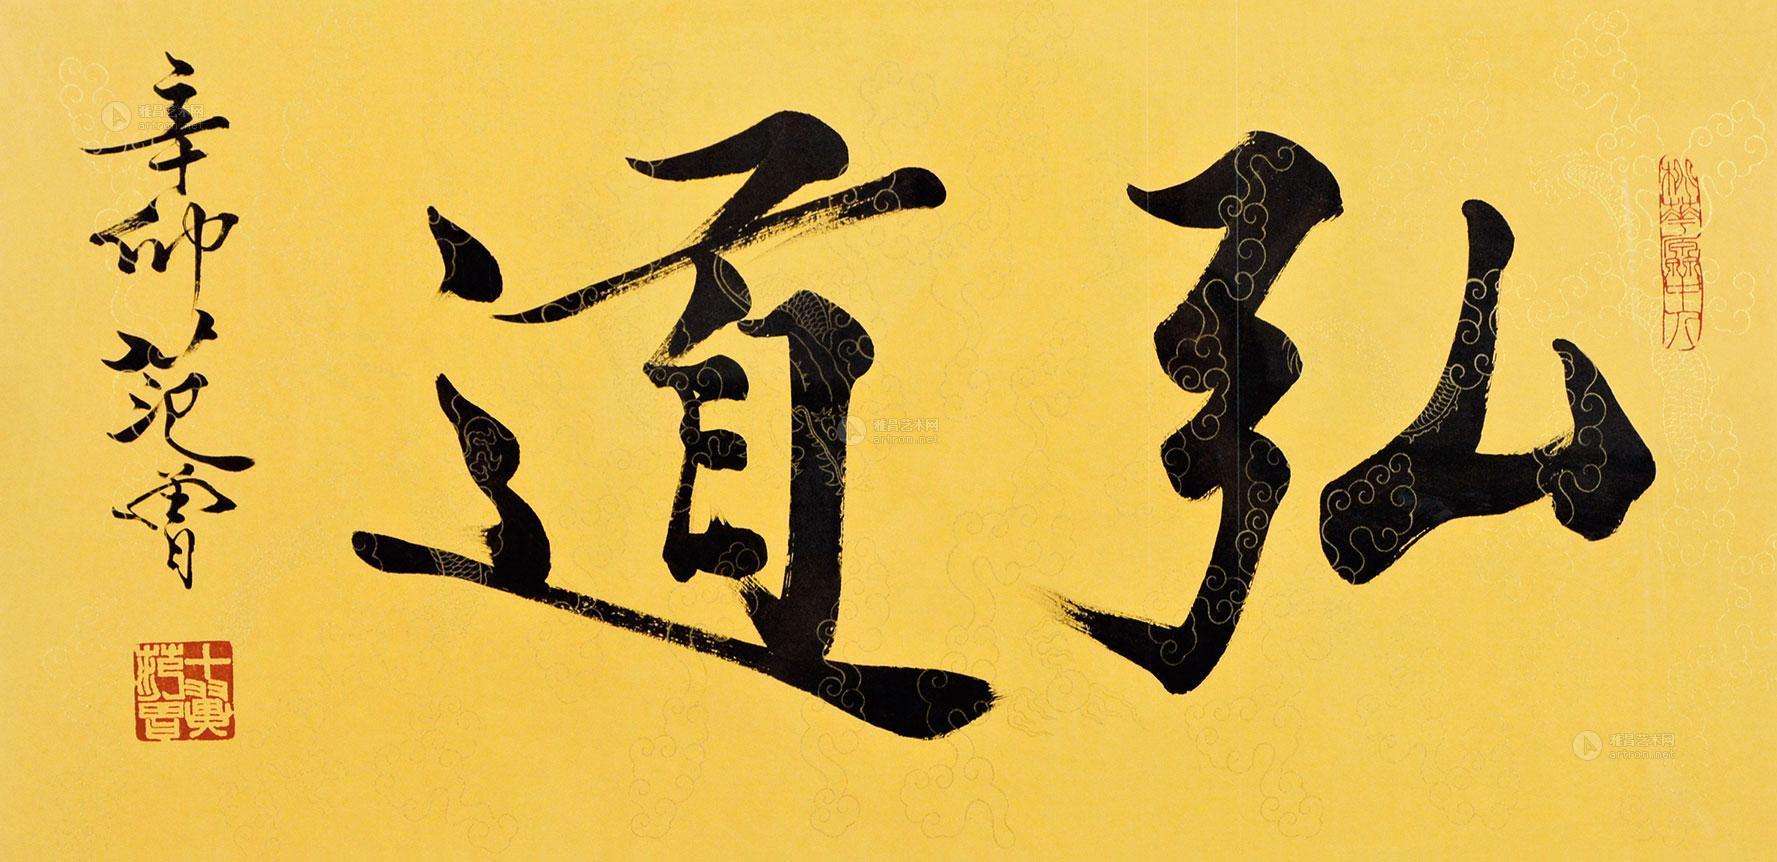 弘道
辛卯 范曾
十翼范曾
雅昌艺术网
artron.net
雅昌艺术网
artron.net
雅昌艺术网
artron.net